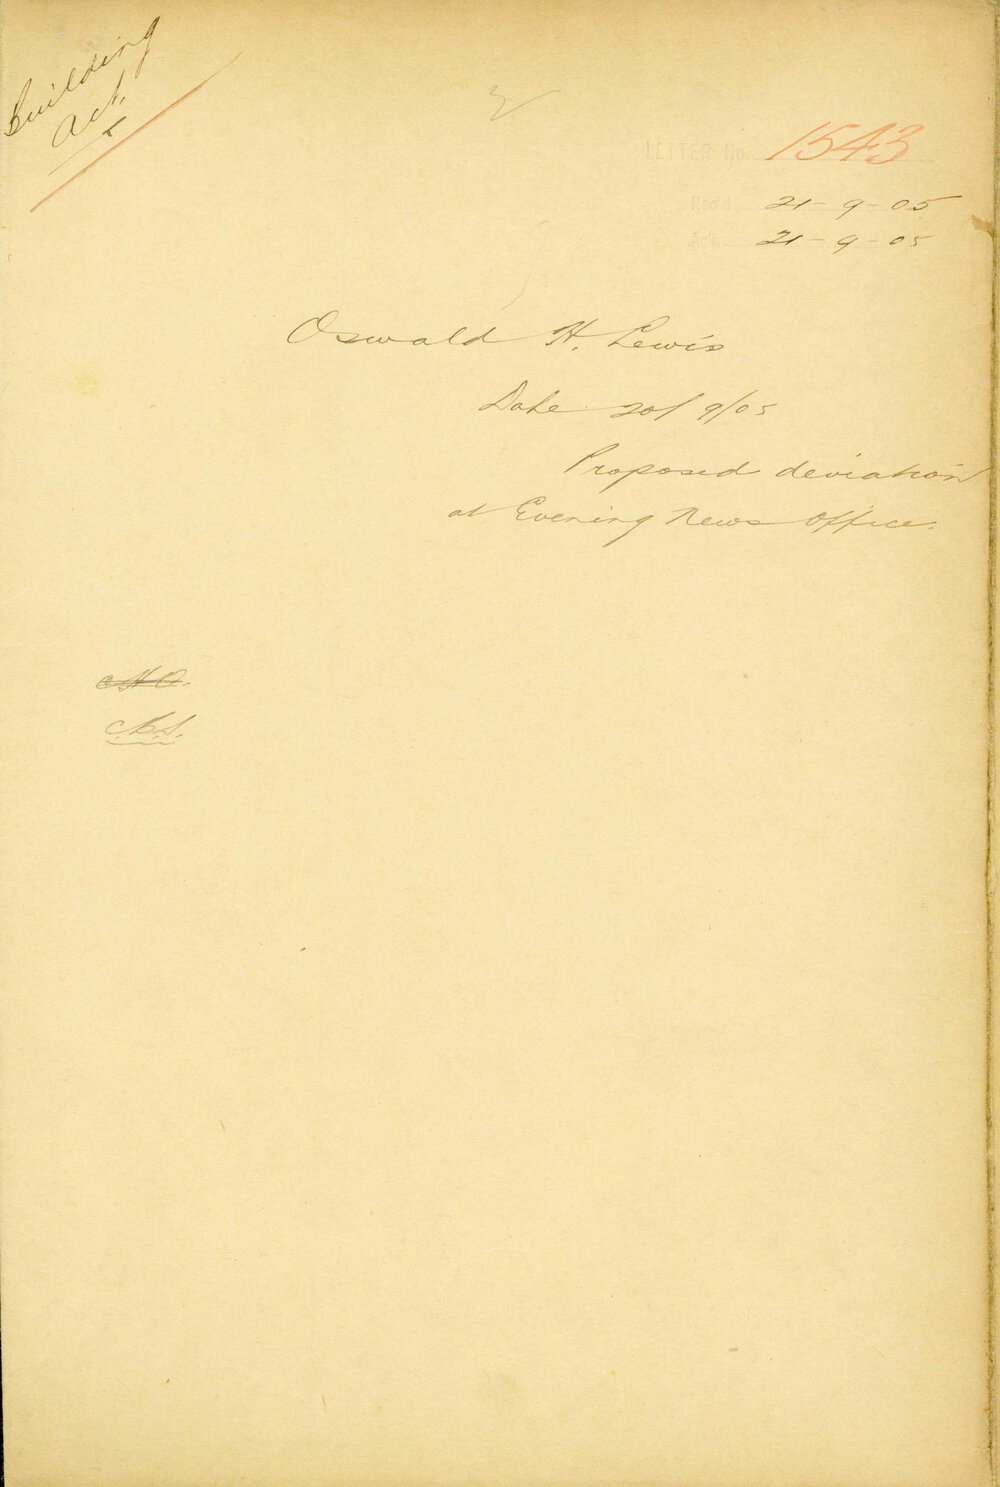 Building
Act.
LETTER No. 1543
Rec'd 21-9-05
Ack. 21-9-05
Oswald H. Lewis
Date 20/9/05
Proposed deviation
at Evening News Office.
C.S.